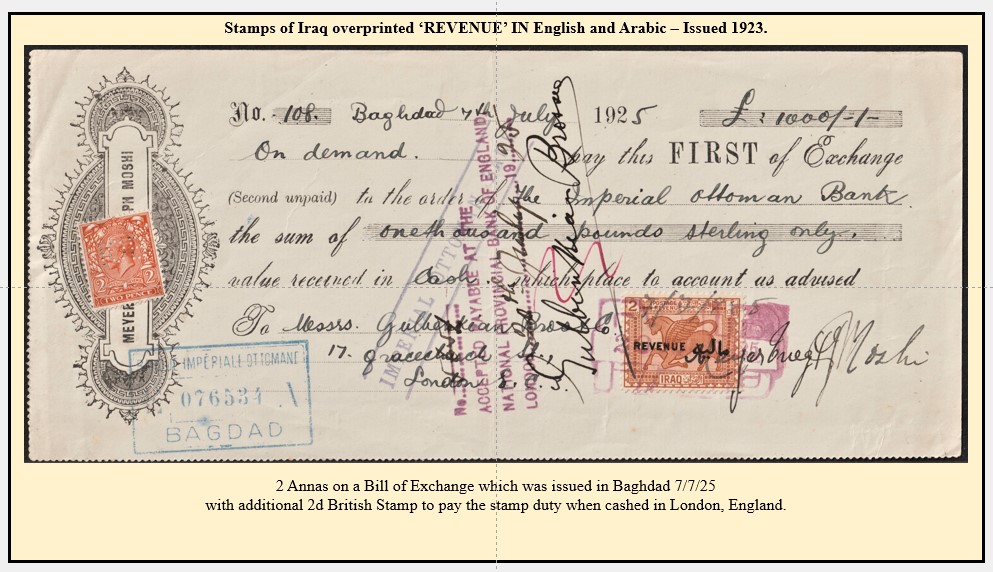 Stamps of Iraq overprinted ‘REVENUE’ IN English and Arabic – Issued 1923.
No. 108. Baghdad 7th July 1925 £ : 1000/-/-
On demand. pay this FIRST of Exchange
(Second unpaid) to the order of The Imperial Ottoman Bank
the sum of one thousand pounds sterling only.
value received in Cash. which place to account as advised
To Messrs. Gulbenkian Bros
17. Gracechurch
London
MEYER
PH MOSHI
2 2
TWO PENCE
IMPERIALE OTTOMANE
076534
BAGDAD
IMPERIAL OTTO
No.
ACCEPTED PAYABLE AT THE
NATIONAL PROVINCIAL BANK OF ENGLAND
LONDON 19 25
Gulbenkian Bros
2
REVENUE
IRAQ
Moshi
2 Annas on a Bill of Exchange which was issued in Baghdad 7/7/25
with additional 2d British Stamp to pay the stamp duty when cashed in London, England.